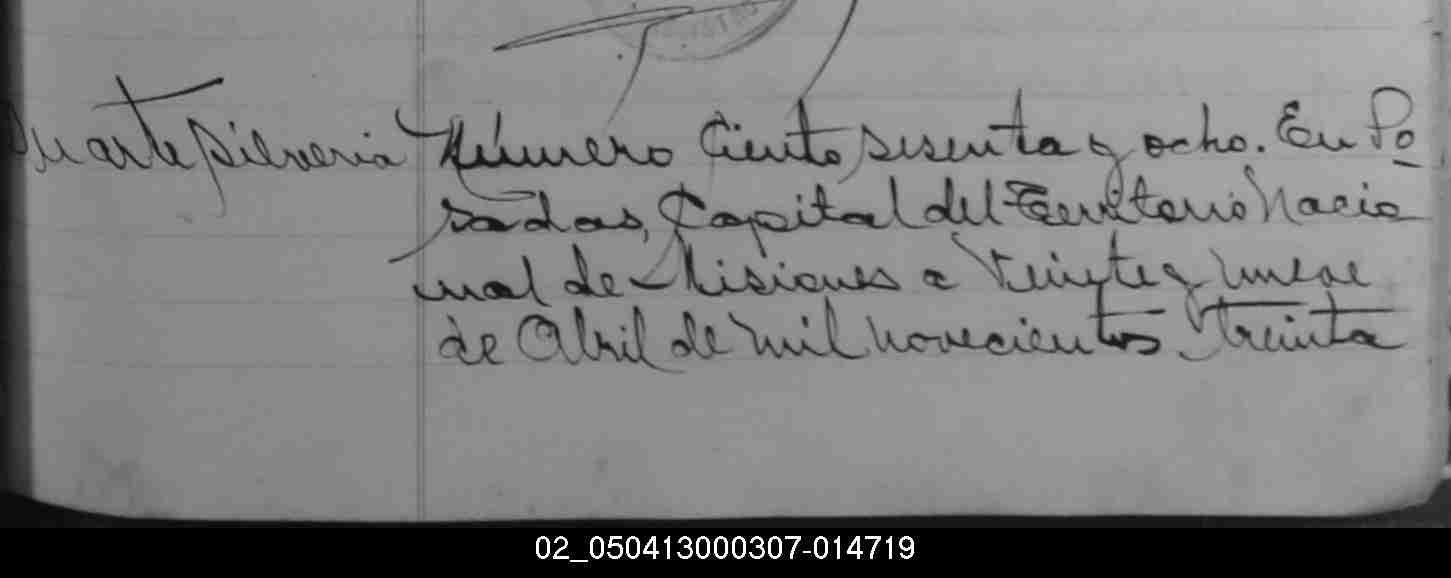 Duarte Silveria
Número Ciento sesenta y ocho. En Po
sadas, Capital del Territorio Nacio
nal de Misiones a Veinte y nueve
de Abril de mil novecientos treinta
02_050413000307-014719